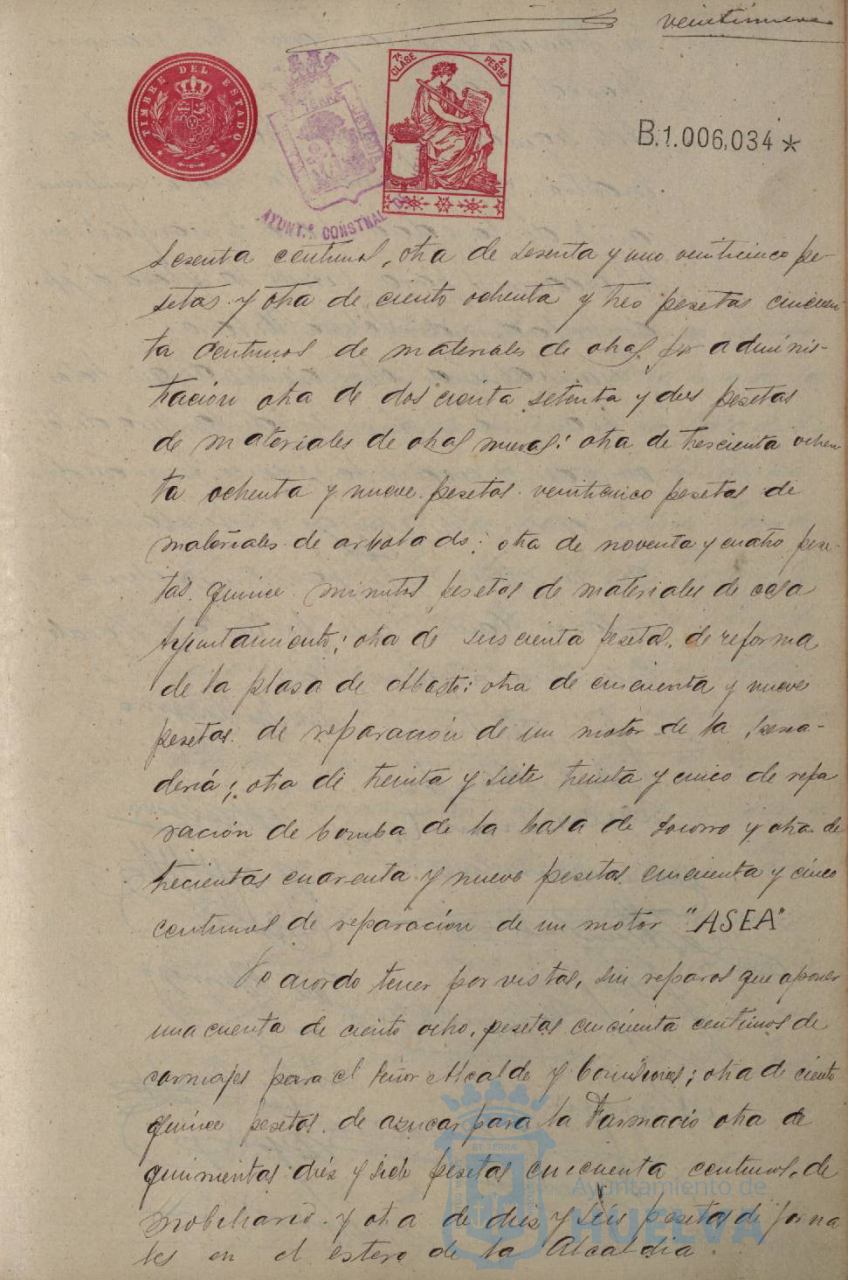 veintinueve
TIMBRE DEL ESTADO
7ª CLASE 2 PESTAS
AYUNT.º CONSTNAL DE
B.1.006,034 *
sesenta centimos, otra de sesenta y uno veinticinco pe-
setas y otra de ciento ochenta y tres pesetas cincuen
ta centimos de materiales de obras por adminis-
tración otra de dos cienta setenta y dos pesetas
de materiales de obras nuevas: otra de trescienta ochen
ta ochenta y nueve pesetas veinticinco pesetas de
materiales de arbolado; otra de noventa y cuatro pese-
tas quince minutos pesetas de materiales de casa
Ayuntamiento; otra de seiscienta pesetas de reforma
de la plasa de Abasto; otra de cincuenta y nueve
pesetas de reparación de un motor de la
dería; otra de treinta y siete treinta y cinco de repa
ración de bomba de la Casa de Socorro y otra de
trecientas cuarenta y nueve pesetas cincuenta y cinco
centimos de reparación de un motor "ASEA"
Se acordo tener por vistas, sin reparos que oponer
una cuenta de ciento ocho pesetas cincuenta centimos de
carruajes para el señor Alcalde y Comisiones; otra de ciento
quince pesetas de azucar para la Farmacia otra de
quinientas diez y siete pesetas cincuenta centimos de
mobiliario y otra de diez y seis pesetas de jorna
les en el estero de la Alcaldia.
Ayuntamiento de
HUELVA